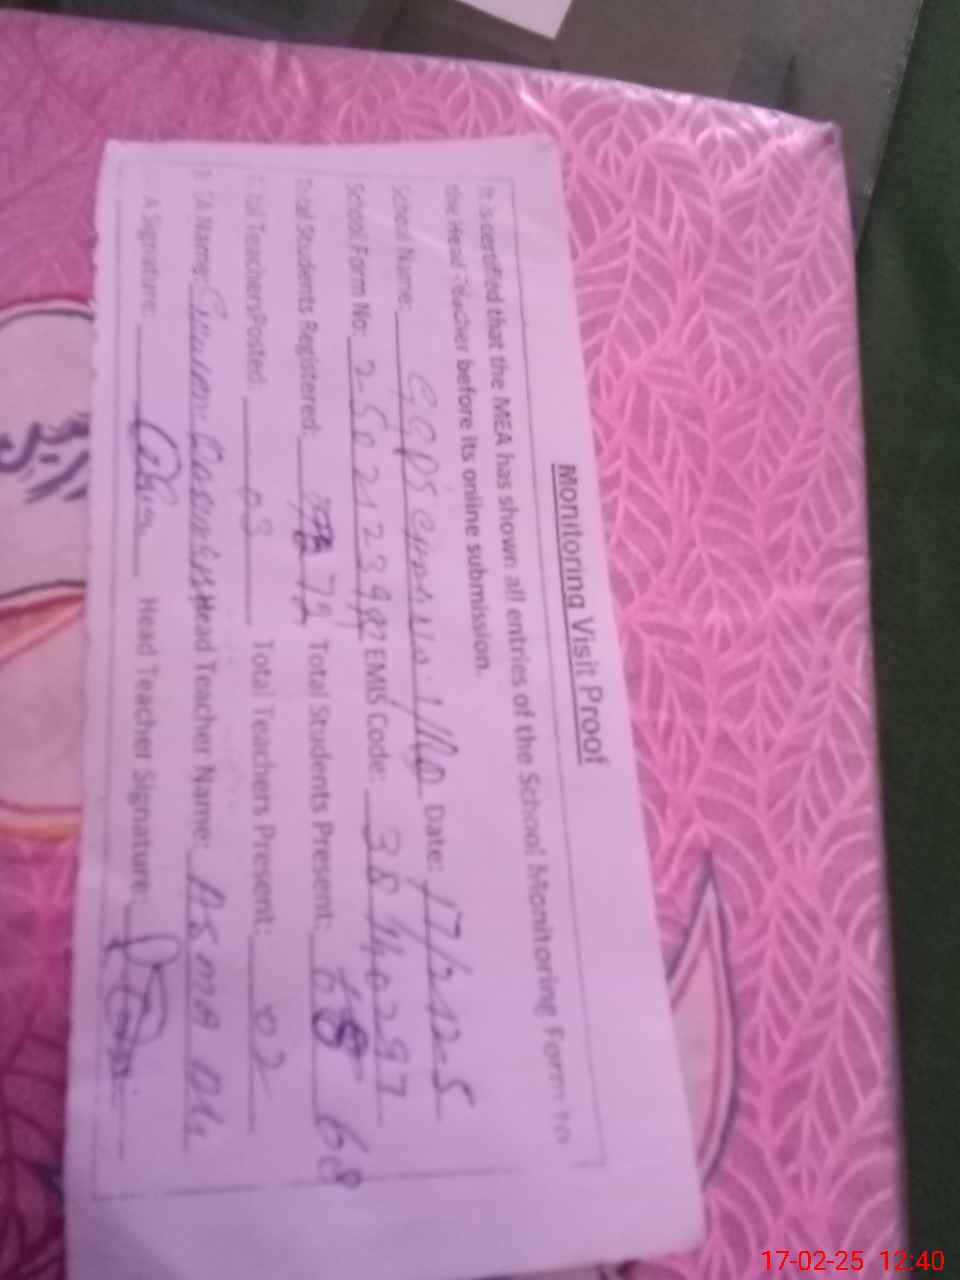 Monitoring Visit Proof
It is certified that the MEA has shown all entries of the School Monitoring Form to
the Head Teacher before its online submission.
School Name: GGPS Date: 17/2/25
School Form No: EMIS Code: 38140297
Total Students Registered: 72 Total Students Present: 68 68
Total Teachers Posted: 03 Total Teachers Present: 02
Name: Head Teacher Name: Asma
A Signature: Head Teacher Signature:
17-02-25 12:40